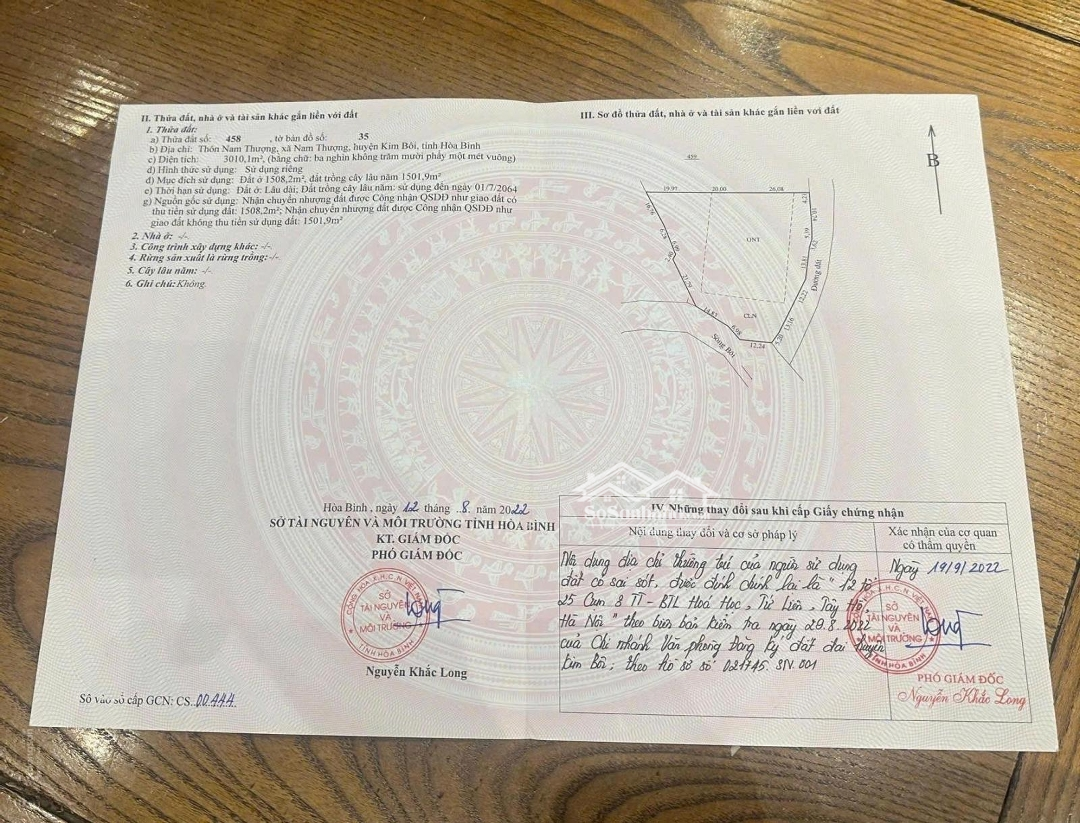 II. Thửa đất, nhà ở và tài sản khác gắn liền với đất
1. Thửa đất:
a) Thửa đất số: 458 , tờ bản đồ số: 35
b) Địa chỉ: Thôn Nam Thượng, xã Nam Thượng, huyện Kim Bôi, tỉnh Hòa Bình
c) Diện tích: 3010,1m², (bằng chữ: ba nghìn không trăm mười phẩy một mét vuông)
d) Hình thức sử dụng: Sử dụng riêng
đ) Mục đích sử dụng: Đất ở 1508,2m², đất trồng cây lâu năm 1501,9m²
e) Thời hạn sử dụng: Đất ở: Lâu dài; Đất trồng cây lâu năm: sử dụng đến ngày 01/7/2064
g) Nguồn gốc sử dụng: Nhận chuyển nhượng đất được Công nhận QSDĐ như giao đất có
thu tiền sử dụng đất: 1508,2m²; Nhận chuyển nhượng đất được Công nhận QSDĐ như
giao đất không thu tiền sử dụng đất: 1501,9m²
2. Nhà ở: -/-
3. Công trình xây dựng khác: -/-
4. Rừng sản xuất là rừng trồng: -/-
5. Cây lâu năm: -/-
6. Ghi chú: Không.
Hòa Bình , ngày 12 tháng ..8. năm 2022
SỞ TÀI NGUYÊN VÀ MÔI TRƯỜNG TỈNH HÒA BÌNH
KT. GIÁM ĐỐC
PHÓ GIÁM ĐỐC
CỘNG HÒA X.H.C.N VIỆT NAM
SỞ
TÀI NGUYÊN
VÀ
MÔI TRƯỜNG
TỈNH HÒA BÌNH
Nguyễn Khắc Long
Số vào sổ cấp GCN: CS..00.444.
III. Sơ đồ thửa đất, nhà ở và tài sản khác gắn liền với đất
B
459
19.97 20.00 26.08
ONT
CLN
Đường đất
21.79
14.87
6.98
12.24
5.20
13.16
12.22
13.81
5.39
Sông Bôi
SoSanhNha
IV. Những thay đổi sau khi cấp Giấy chứng nhận
Nội dung thay đổi và cơ sở pháp lý
Xác nhận của cơ quan
có thẩm quyền
Nội dung địa chỉ thường trú của người sử dụng
đất có sai sót. được đính chính lại là " 12 tổ
25 Cụm 8 TT - BTL Hoá Học, Tứ Liên, Tây Hồ,
Hà Nội " theo biên bản kiểm tra ngày 29.8.2022
của Chi nhánh Văn phòng Đăng ký đất đai huyện
Kim Bôi; theo hồ sơ số 021745. SN.001
Ngày 19/9/2022
CỘNG HÒA X.H.C.N VIỆT NAM
SỞ
TÀI NGUYÊN
VÀ
MÔI TRƯỜNG
TỈNH HÒA BÌNH
PHÓ GIÁM ĐỐC
Nguyễn Khắc Long